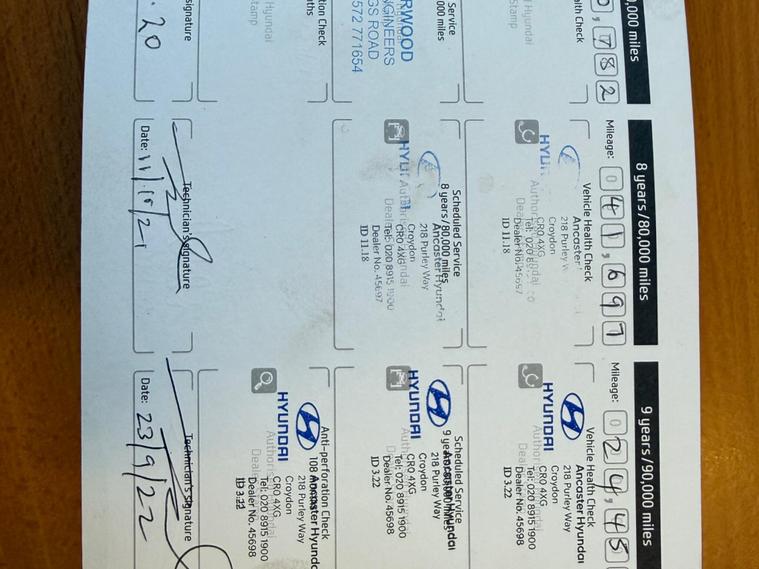 0,000 miles
0,782
ealth Check
Hyundai
Stamp
Service
000 miles
RWOOD
NGINEERS
GS ROAD
572 771654
tion Check
ths
Hyundai
stamp
signature
.20
8 years/80,000 miles
Mileage: 041,697
Vehicle Health Check
Ancaster
218 Purley W
Croydon
CR0 4XG
ID 11.18
Scheduled Service
8 years/80,000 miles
Ancaster Hyundai
218 Purley Way
Croydon
CR0 4XG
Tel: 020 8915 1900
Dealer No. 45697
ID 11.18
Technician's signature
Date: 11/10/21
9 years/90,000 miles
Mileage: 024,45
Vehicle Health Check
Ancaster Hyundai
218 Purley Way
Croydon
CR0 4XG
Tel: 020 8915 1900
Dealer No. 45698
ID 3.22
HYUNDAI
Scheduled Service
Ancaster Hyundai
218 Purley Way
Croydon
CR0 4XG
Tel: 020 8915 1900
Dealer No. 45698
ID 3.22
HYUNDAI
Anti-perforation Check
108
Ancaster Hyundai
218 Purley Way
Croydon
CR0 4XG
Tel: 020 8915 1900
Dealer No. 45698
ID 3.22
HYUNDAI
Technician's signature
Date: 23/9/22